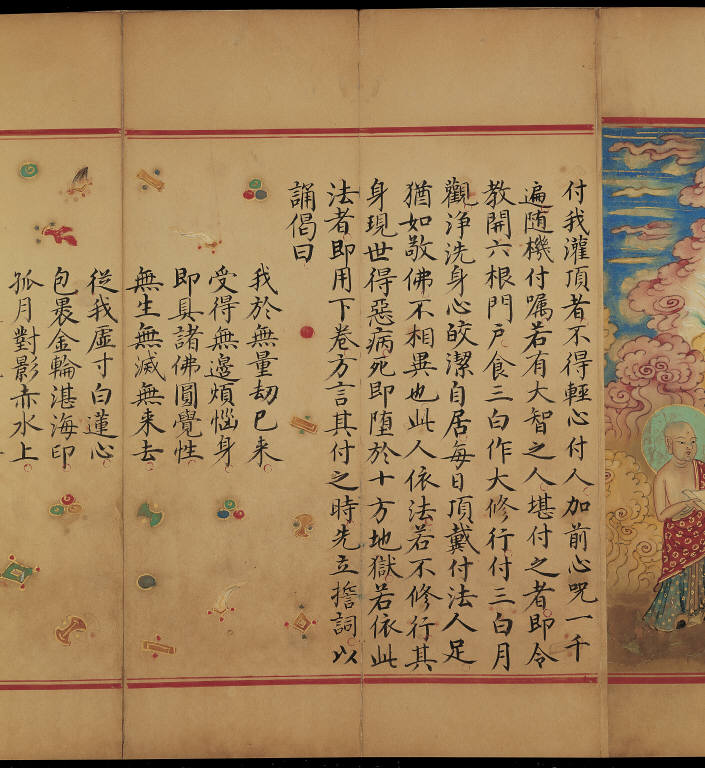 付我灌頂者不得輕心付人加前心呪一千
遍随機付嘱若有大智之人堪付之者即令
教開六根門戶食三白作大修行付三白月
觀淨洗身心皎潔自居每日頂戴付法人足
猶如敬佛不相異也此人依法若不修行其
身現世得惡病死即墮於十方地獄若依此
法者即用下卷方言其付之時先立擔詞以
誦偈曰
我於無量刧已来
受得無邊煩惱身
即具諸佛圓覺性
無生無滅無来去
從我虛寸白蓮心
包褁金輪湛海印
孤月對影赤水上